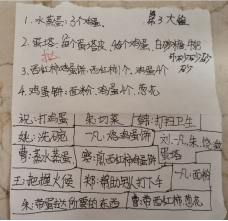 1.水蒸蛋:3个鸡蛋. 第3大组
2.蛋塔:8个蛋塔皮
3.西红柿鸡蛋饼:西红柿1个,鸡蛋4个
4.鸡蛋饼:面粉,鸡蛋4个,葱花
祝:打鸡蛋 朱:切菜 打扫卫生
姝:洗碗 一凡:鸡蛋饼 刘.一凡.朱
曹:蒸水蒸蛋 西红柿鸡蛋饼 蛋塔
王:把握火候 郑:帮助别人打下手 一凡:面粉
朱:带蛋挞所要的东西 曹:带西红柿葱花